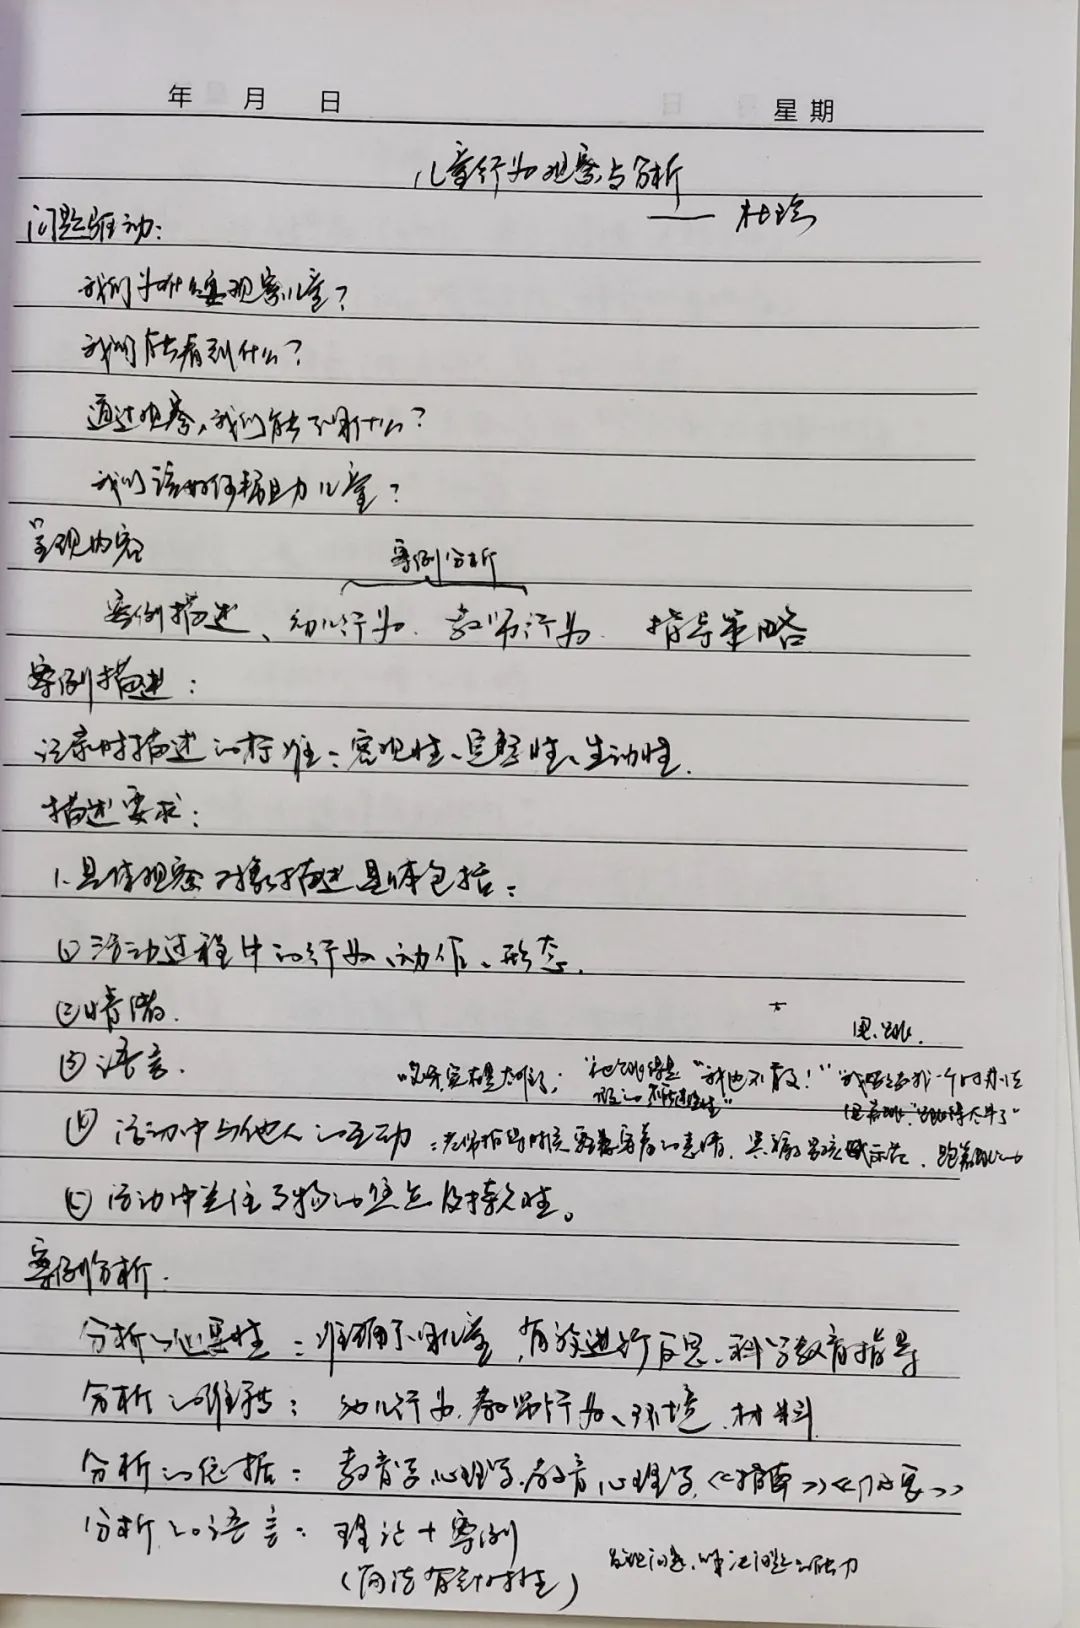 年 月 日 星期
儿童行为观察与分析
——杜玲
问题驱动:
我们为什么要观察儿童?
我们能看到什么?
通过观察,我们能了解什么?
我们该如何帮助儿童?
呈现内容
案例分析
案例描述、幼儿行为、教师行为、指导策略
案例描述:
记录时描述的标准:客观性、完整性、生动性.
描述要求:
1.具体观察对象描述具体包括:
①活动过程中的行为、动作、形态.
②情绪.
③语言.
"我也不敢!"
④活动中与他人的互动
⑤活动中关注事物的焦点及持久性。
案例分析.
分析的必要性:准确了解儿童,有效进行反思、科学教育指导
分析的维度:幼儿行为、教师行为、环境、材料
分析的依据:教育学、心理学、教育心理学、《指南》《纲要》
分析的语言:理论+案例
(简洁有针对性)